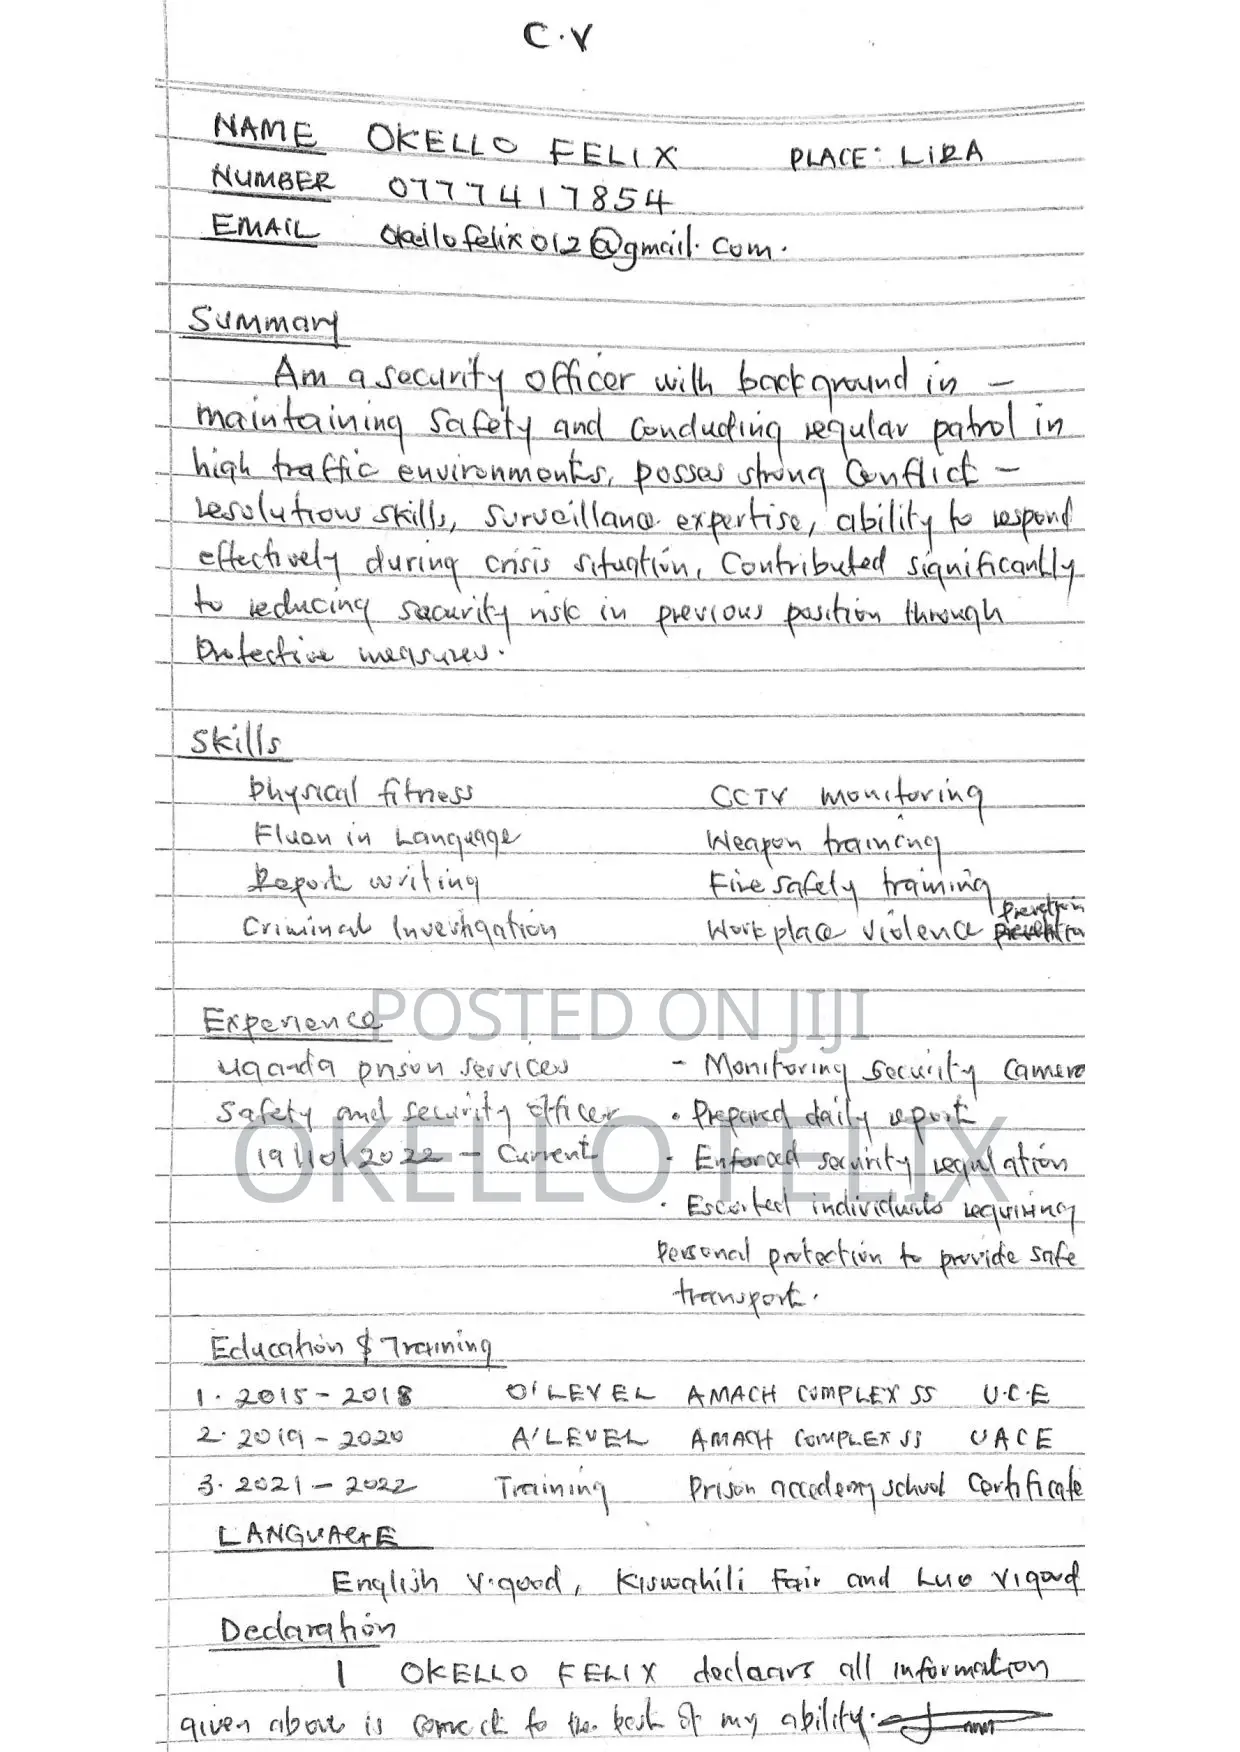 C.V
NAME OKELLO FELIX PLACE: LIRA
NUMBER 0777417854
EMAIL okellofelix012@gmail.com.
Summary
Am a security officer with background in -
maintaining safety and conducting regular patrol in
high traffic environments, posses strong conflict -
resolution skills, surveillance expertise, ability to respond
effectively during crisis situation, Contributed significantly
to reducing security risk in previous position through
protective measures.
Skills
Physical fitness CCTV monitoring
Fluen in Language Weapon training
Report writing Fire safety training
Criminal Investigation Workplace violence prevention
Experience
POSTED ON JIJI
Uganda prison services - Monitoring security camera
Safety and security officer • Prepared daily report
OKELLO FELIX
19/10/2022 - Current • Enforced security regulation
• Escorted individuals requiring
personal protection to provide safe
transport.
Education & Training
1. 2015 - 2018 O'LEVEL AMACH COMPLEX SS U.C.E
2. 2019 - 2020 A'LEVEL AMACH COMPLEX SS UACE
3. 2021 - 2022 Training Prison accedemy school Certificate
LANGUAGE
English v.good, Kiswahili Fair and Luo v.good
Declaration
I OKELLO FELIX declaars all information
given above is correct to the best of my ability.